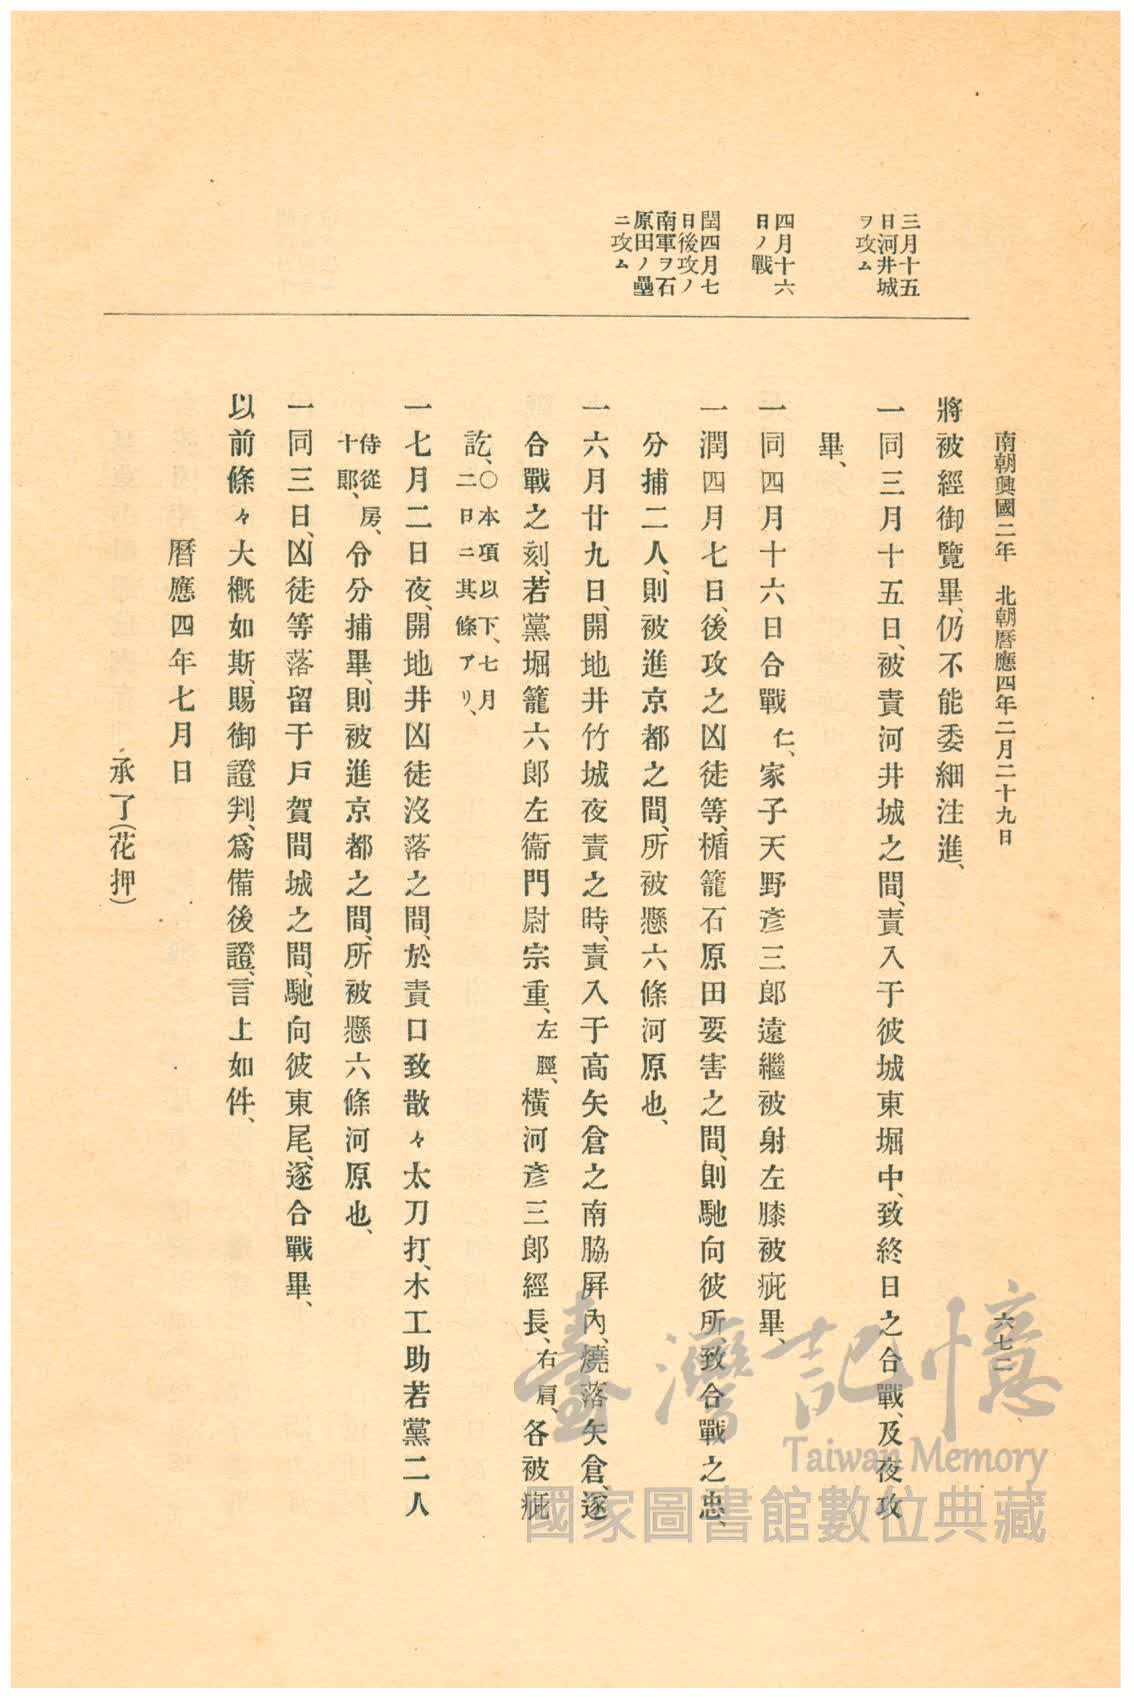 南朝興國二年　北朝曆應四年二月二十九日
六七二
三月十五
日河井城
ヲ攻ム
四月十六
日ノ戰
閏四月七
日後攻ノ
南軍ヲ石
原田ノ壘
ニ攻ム
將被經御覽畢、仍不能委細注進、
一同三月十五日、被責河井城之間、責入于彼城東堀中、致終日之合戰、及夜攻
畢、
一同四月十六日合戰仁、家子天野彥三郎遠繼被射左膝被疵畢、
一潤四月七日、後攻之凶徒等、楯籠石原田要害之間、則馳向彼所、致合戰之忠、
分捕二人、則被進京都之間、所被懸六條河原也、
一六月廿九日、開地井竹城夜責之時、責入于高矢倉之南脇屏內、燒落矢倉、遂
合戰之刻、若黨堀籠六郎左衞門尉宗重、左脛、橫河彥三郎經長、右肩、各被疵
訖、〇本項以下、七月
二日ニ其條アリ、
一七月二日夜、開地井凶徒沒落之間、於責口致散々太刀打、木工助若黨二人
侍從房、
十郎、令分捕畢、則被進京都之間、所被懸六條河原也、
一同三日、凶徒等落留于戶賀間城之間、馳向彼東尾、遂合戰畢、
以前條々大概如斯、賜御證判、爲備後證、言上如件、
曆應四年七月日
承了(花押)
臺灣記憶
Taiwan Memory
國家圖書館數位典藏